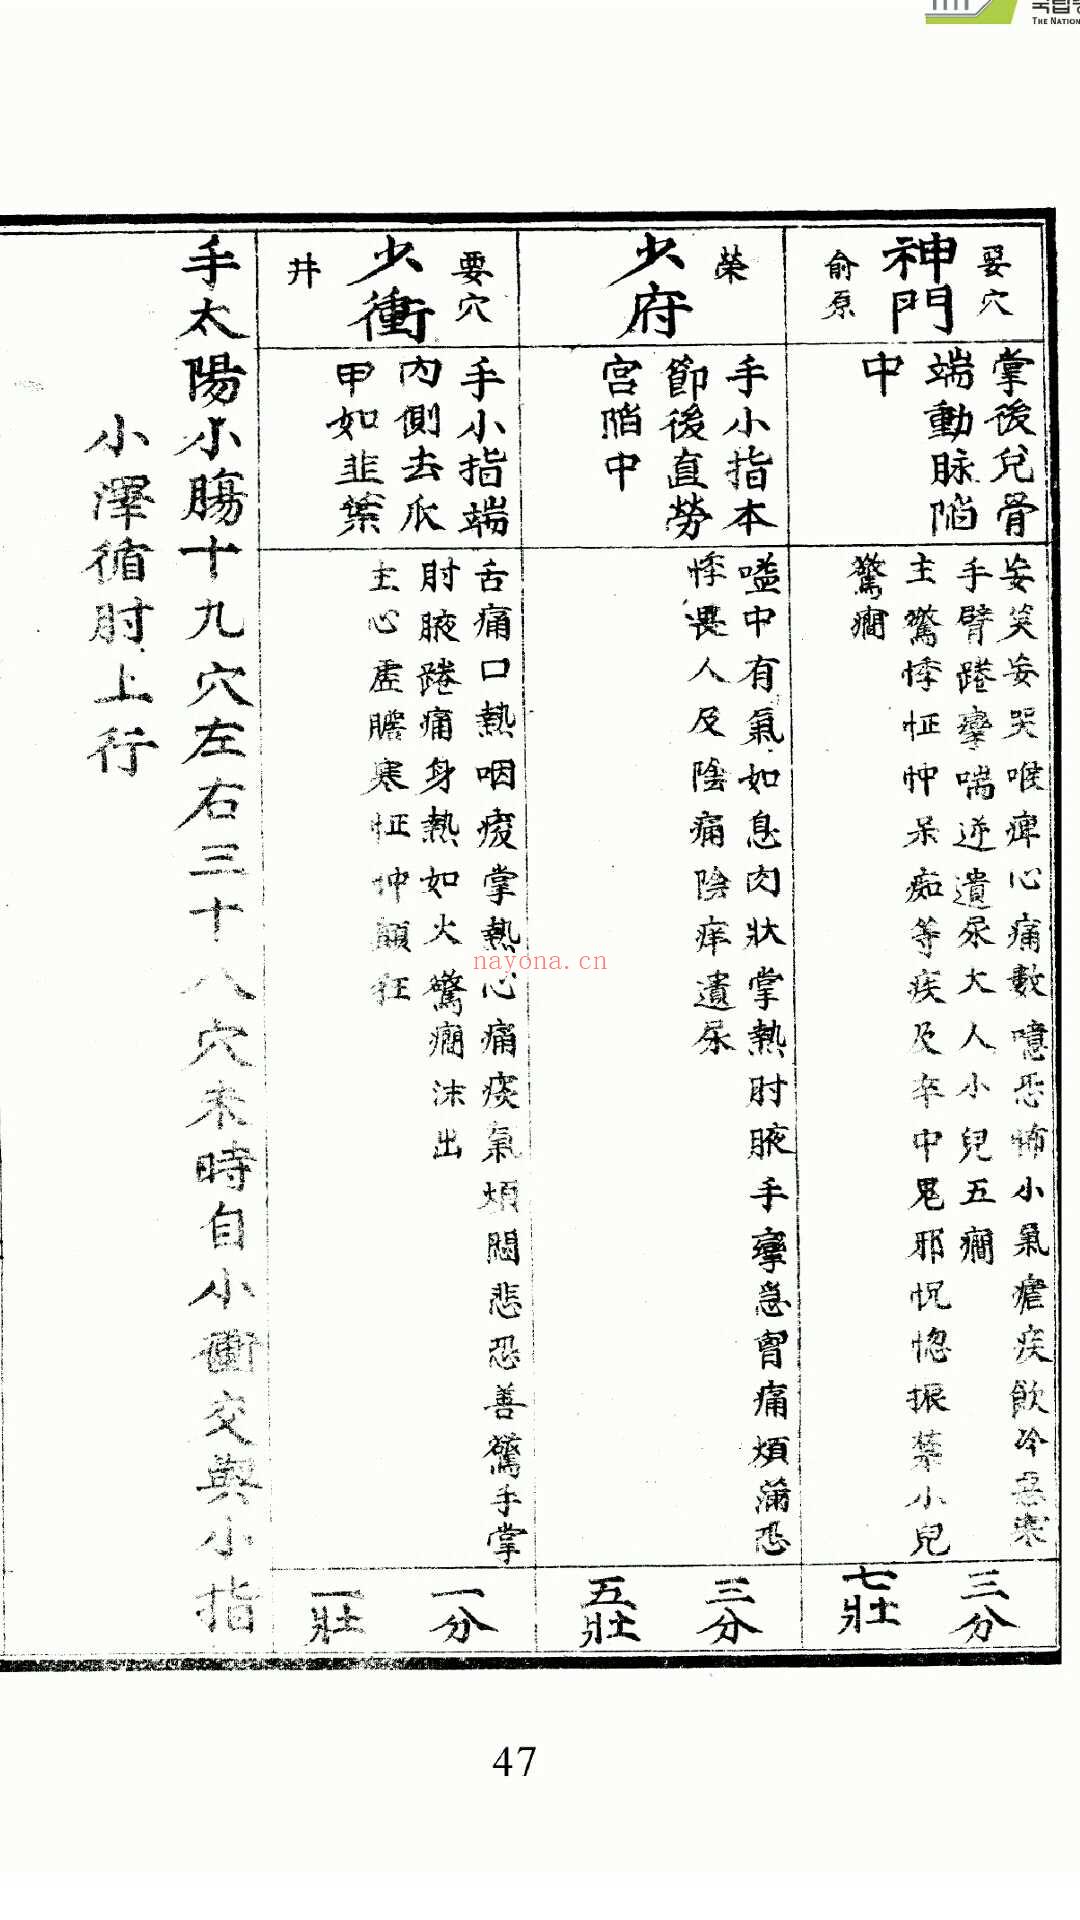 국립중
THE NATION
要穴
神門
俞原
掌後兌骨
端動脉陷
中
妄笑妄哭喉痺心痛數噫恐怖小氣瘧疾飲冷惡寒
手臂踡攣喘逆遺尿大人小兒五癎
主驚悸怔忡呆痴等疾及卒中鬼邪怳惚振禁小兒
驚癎
三分
七壯
榮
少府
手小指本
節後直勞
宮陷中
嗌中有氣如息肉狀掌熱肘腋手攣急胷痛煩滿恐
悸畏人及陰痛陰痒遺尿
三分
五壯
要穴
少衝
井
手小指端
內側去爪
甲如韭葉
舌痛口熱咽痠掌熱心痛痰氣煩悶悲恐善驚手掌
肘腋踡痛身熱如火驚癎沫出
主心虛膽寒怔忡顚狂
一分
一壯
手太陽小腸十九穴左右三十八穴未時自小衝交與小指
小澤循肘上行
nayona.cn
47